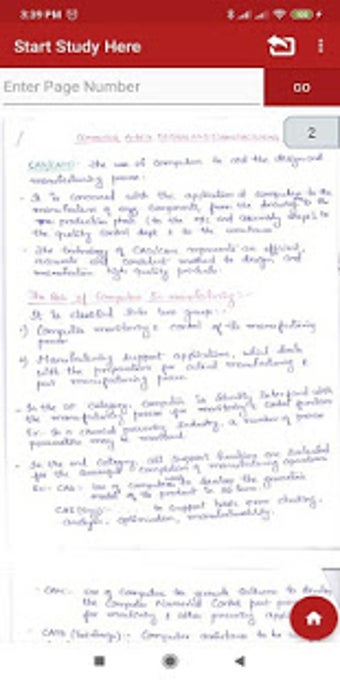 3:39 PM
Start Study Here
Enter Page Number
GO
2
COMPUTER AIDED DESIGN AND MANUFACTURING
CAD/CAM:- The use of computers to aid the design and
manufacturing process.
- It is concerned with the application of computers to the
manufacture of engg components, from the drawing to the
production phase (to the m/c and assembly shops) to
the quality control dept & to the warehouse.
- The technology of CAD/CAM represents an efficient,
accurate and consistent method to design and
manufacture high quality products.
The Role of Computer In manufacturing:-
It is classified into two groups:-
i) Computer monitoring & control of the manufacturing
process
ii) Manufacturing support applications, which deals
with the preparations for actual manufacturing &
post manufacturing process.
- In the 1st category, computer is directly interfaced with
the manufacturing process for monitoring & control functions
Ex:- In a chemical processing industry, a number of process
parameters may be monitored.
- In the 2nd category, all support functions are included
for the successful completion of manufacturing operations
Ex:- CAD:- use of computers to develop the geometric
model of the product in
CAE (Engg):- to support basic error checking,
analysis, optimization, manufacturability.
- CAMC: use of computers to generate
the Computer Numerical Control part
for machining & other processing
- CATD (Tool design):- Computer assistance to be